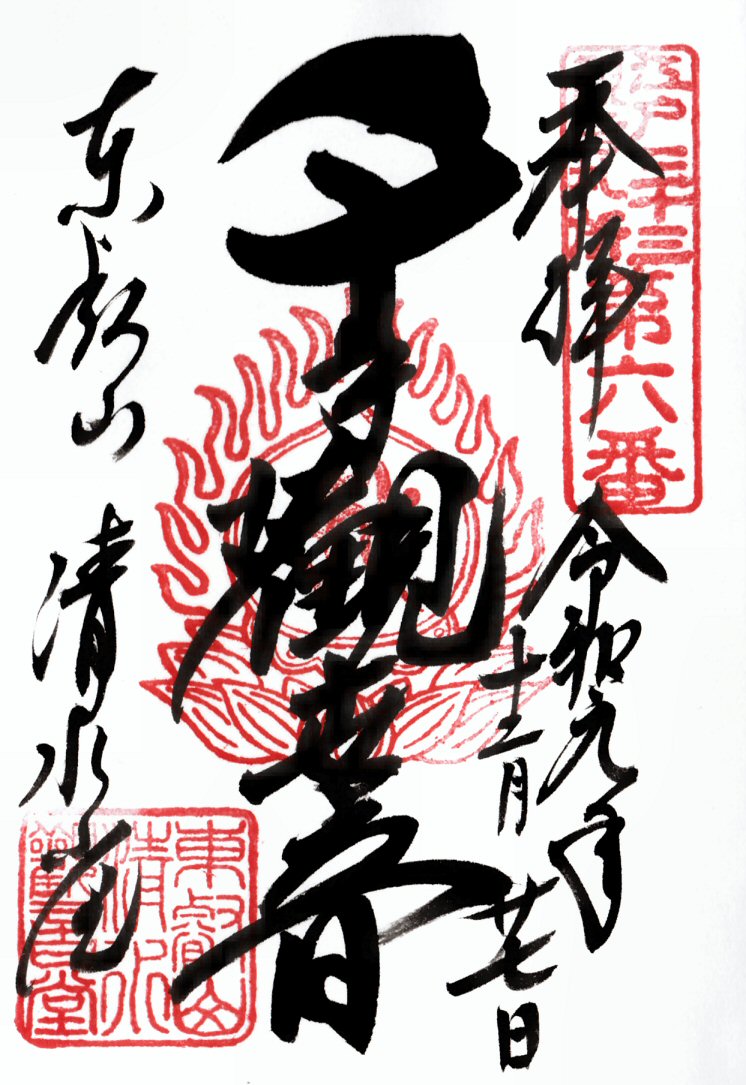 奉拝
令和元年
十二月廿七日
三十三
第六番
千手觀世音
東叡山 清水堂
東叡山
清水
觀音堂